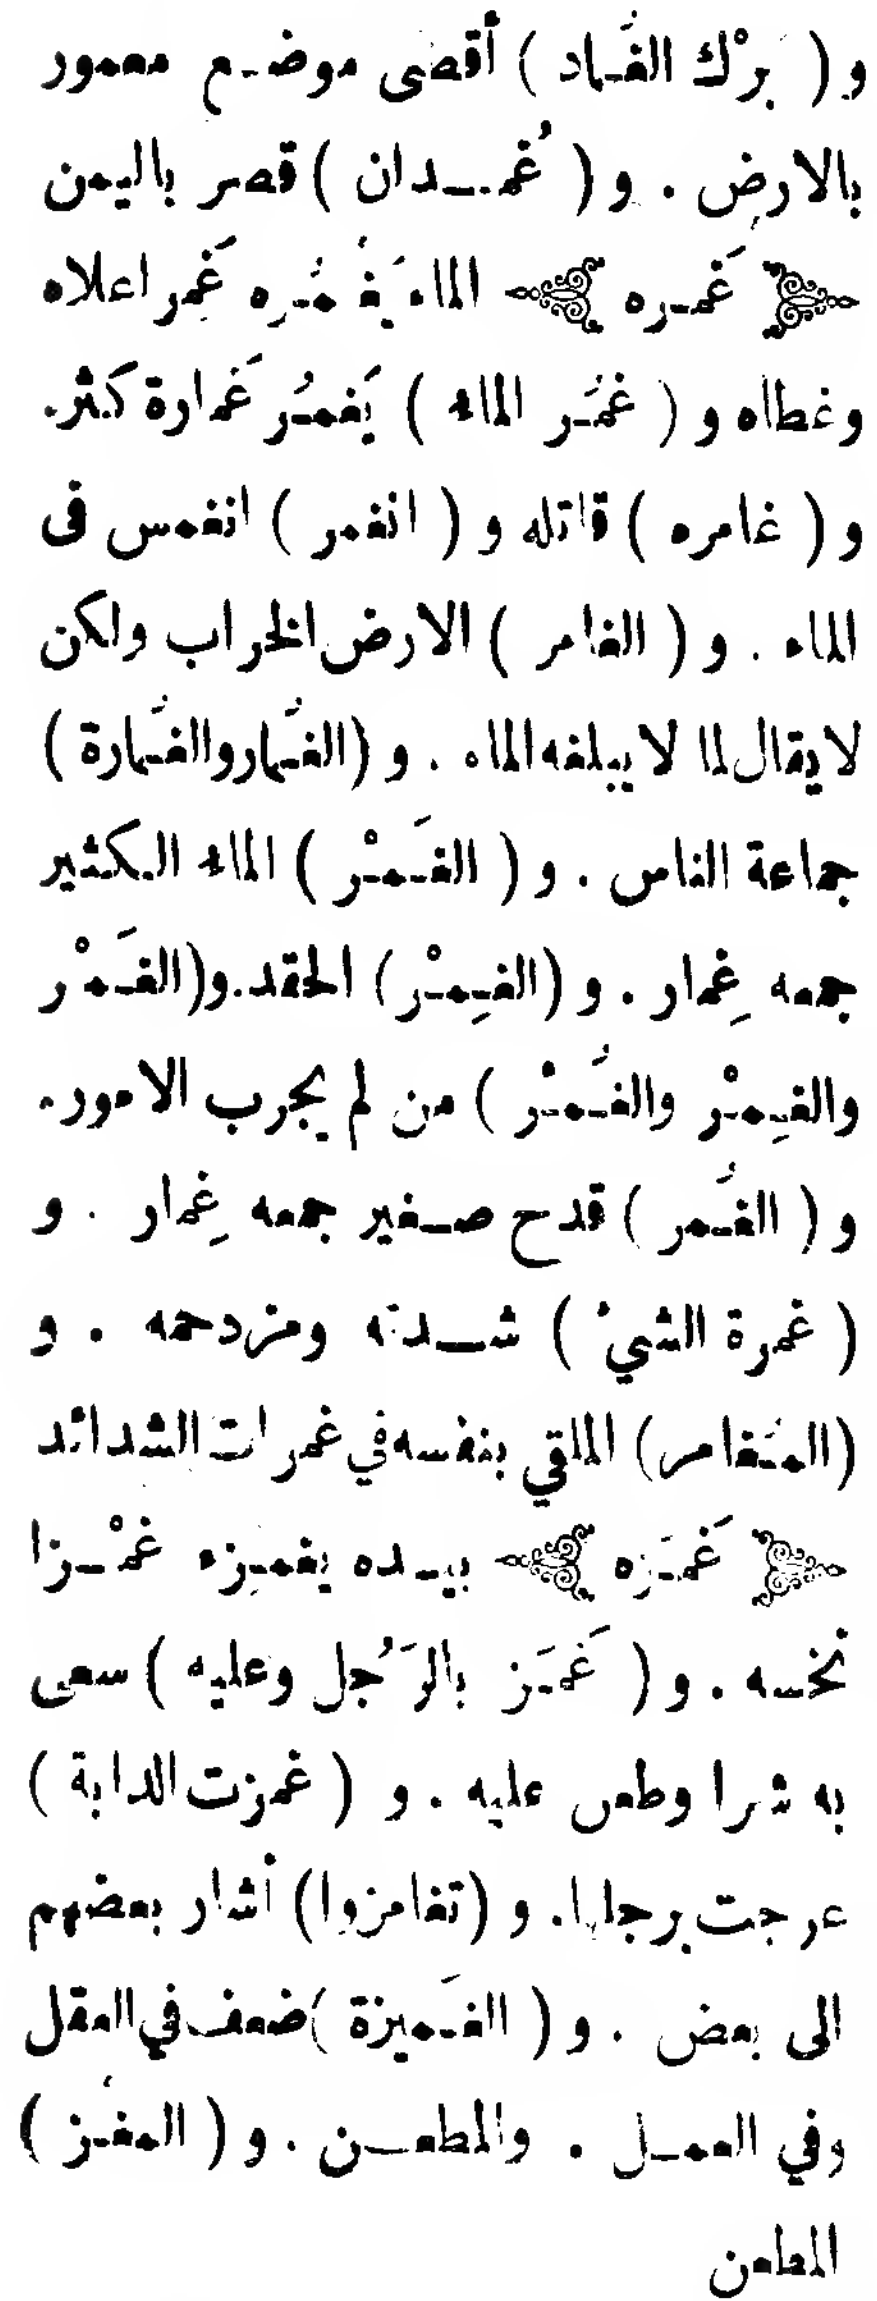 و ( بِرْك الغُماد ) أقصى موضع معمور
بالارض . و ( غُمدان ) قصر باليمن
﴿ غَمره ﴾ الماء يَغمُره غَمرا علاه
وغطاه و ( غمُر الماء ) يَغمُر غَمارة كثر.
و ( غامره ) قاتله و ( انغمر ) انغمس فى
الماء . و ( الغامر ) الارض الخراب ولكن
لا يقال لما لا يبلغه الماء . و (الغُمار والغُمارة )
جماعة الناس . و ( الغَمْر ) الماء الكثير
جمعه غِمار . و (الغِمْر) الحقد. و(الغَمْر
والغِمْر والغُمْر ) من لم يجرب الامور.
و ( الغُمر ) قدح صغير جمعه غِمار . و
( غمرة الشيء ) شدته ومزدحمه . و
(المُغامر) الملقي بنفسه في غمرات الشدائد
﴿ غَمَزه ﴾ بيده يغمِزه غمْزا
نخسه . و ( غَمَز بالرَجُل وعليه ) سعى
به شرا وطعن عليه . و ( غمزت الدابة )
عرجت برجلها. و (تغامزوا) أشار بعضهم
الى بعض . و ( الغَميزة ) ضعف في العقل
وفي العمل . والمطعن . و ( المغمز )
المطعن